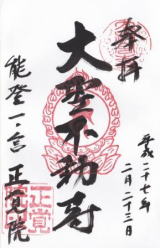 奉拝
平成二十七年
二月二十三日
大聖不動尊
能登一ノ宮
正覚院
正覚院印